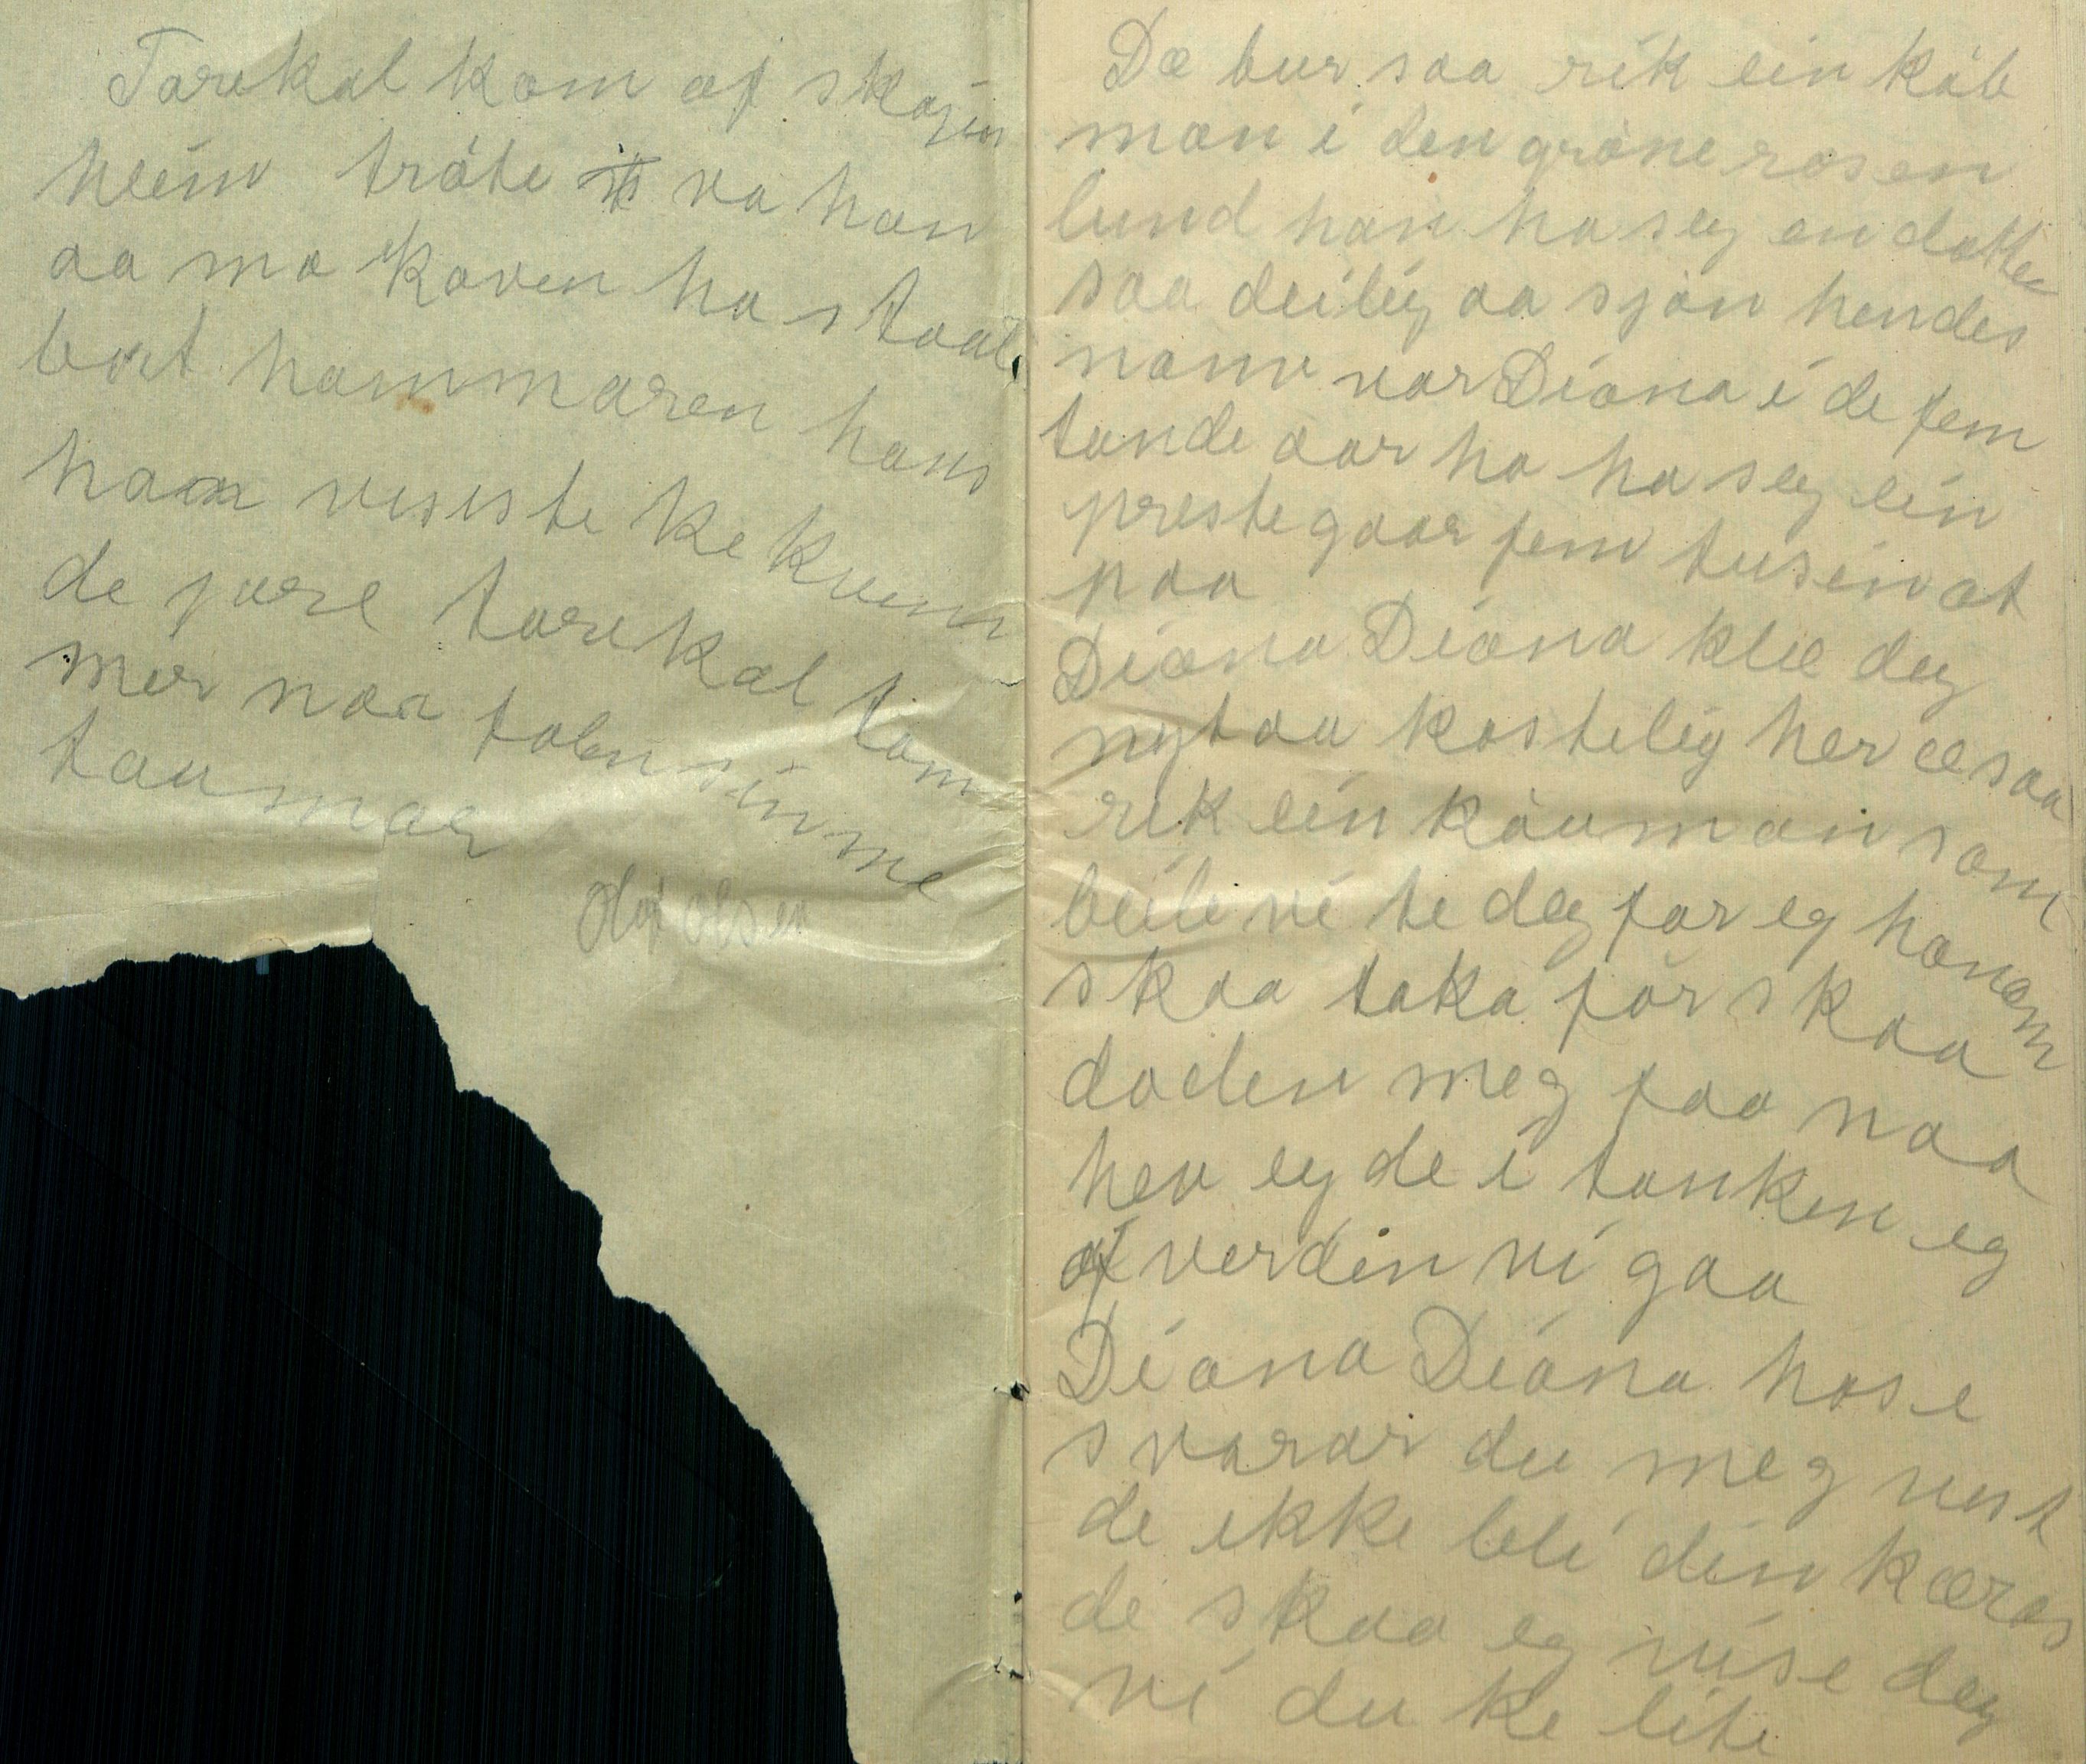 Torekal kom af skogen
heim tròte va han
aa mo Koven ha staale
bort hammaren hans
han visste ke kvem
de jore torekal tom
mer naa tolen sin me
taumar
Olof Olsen
Dæ bur saa rik ein kòb
man i den gròne rosen
lund han ha seg en dotter
saa deilig aa sjòn hendes
namn var Diana i de fem
tande aar ho ha seg ein
prestegaar fem tusin at
paa
Diana Diana klæ deg
nyt aa kostelig her æ saa
rik ein kòuman som
beile vi te deg för eg honom
skaa taka för skaa
doden meg faa naa
hev eg de i tanken eg
af verdin vi gaa
Diana Diana hos e
svarar du meg vist
de ikke bli din kæras
de skaa eg vise deg
vi du ke lite